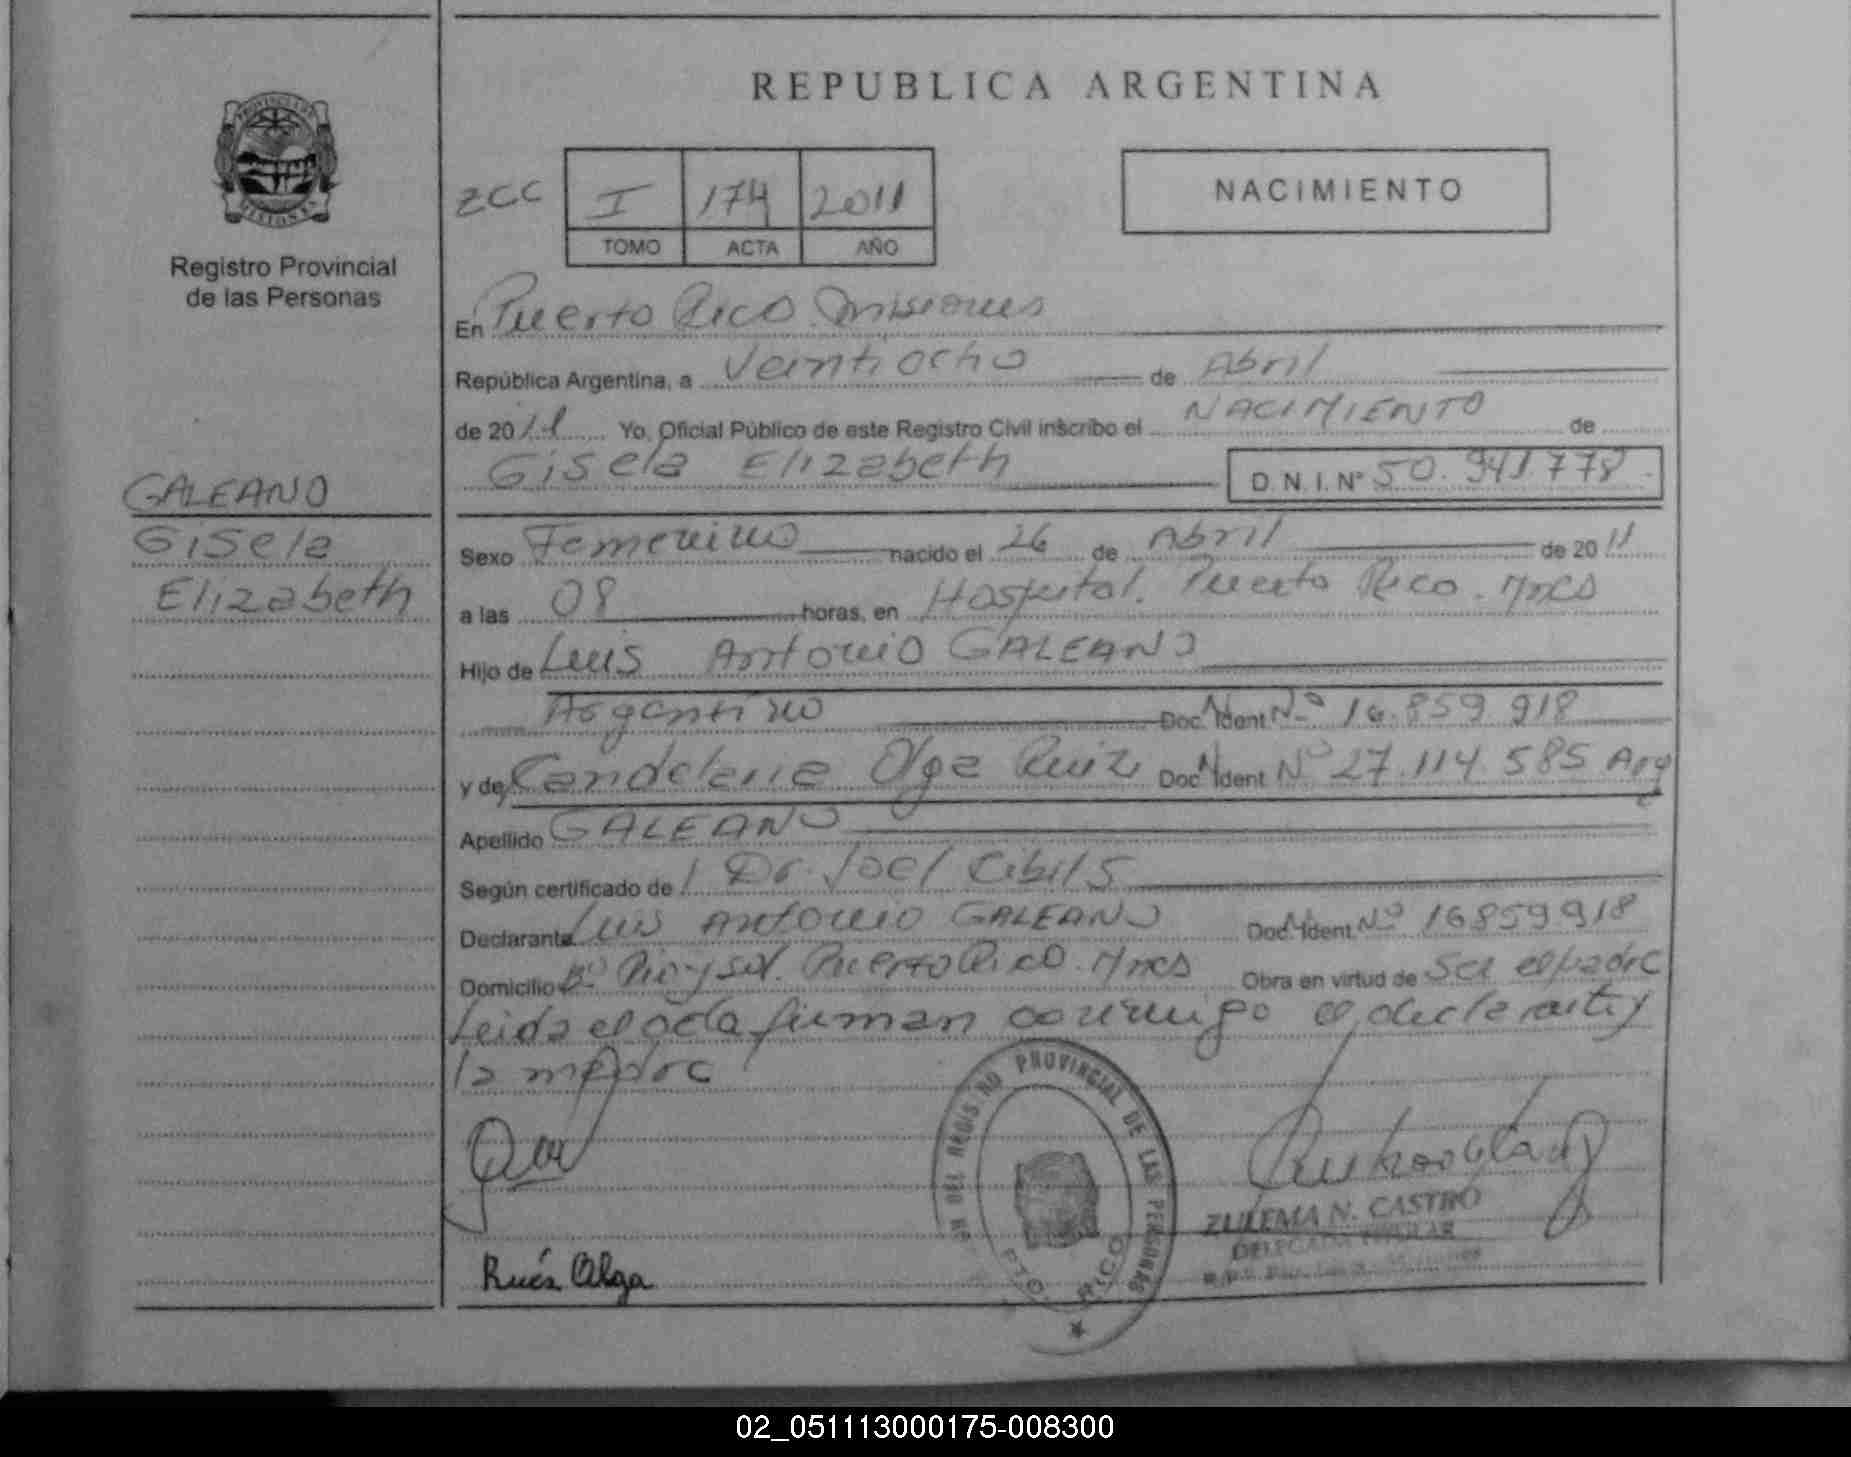 REPUBLICA ARGENTINA
PROVINCIA DE
MISIONES
Registro Provincial
de las Personas
ZCC I 174 2011
TOMO ACTA AÑO
NACIMIENTO
En Puerto Rico Misiones
República Argentina, a Veintiocho de Abril
de 2011 Yo, Oficial Público de este Registro Civil inscribo el NACIMIENTO de
Gisela Elizabeth D.N.I. Nº 50.941778
GALEANO
Gisela
Elizabeth
Sexo Femenino nacido el 26 de Abril de 2011
a las 08 horas, en Hospital. Puerto Rico. Mnes
Hijo de Luis Antonio GALEANO
Argentino Doc. Ident Nº 16.859.918
y de Candelaria Olga Ruiz Doc. Ident Nº 27.114.585 Arg
Apellido GALEANO
Según certificado de Dr. Joel Cibils
Declarante Luis Antonio GALEANO Doc. Ident. Nº 16859918
Domicilio Bº Puerto Rico. Mnes Obra en virtud de Ser el padre
Leida el acta firman conmigo el declarante y
la madre
REGISTRO PROVINCIAL DE LAS PERSONAS
PTO. RICO
ZULEMA N. CASTRO
DELEGADA TITULAR
Olga
02_051113000175-008300